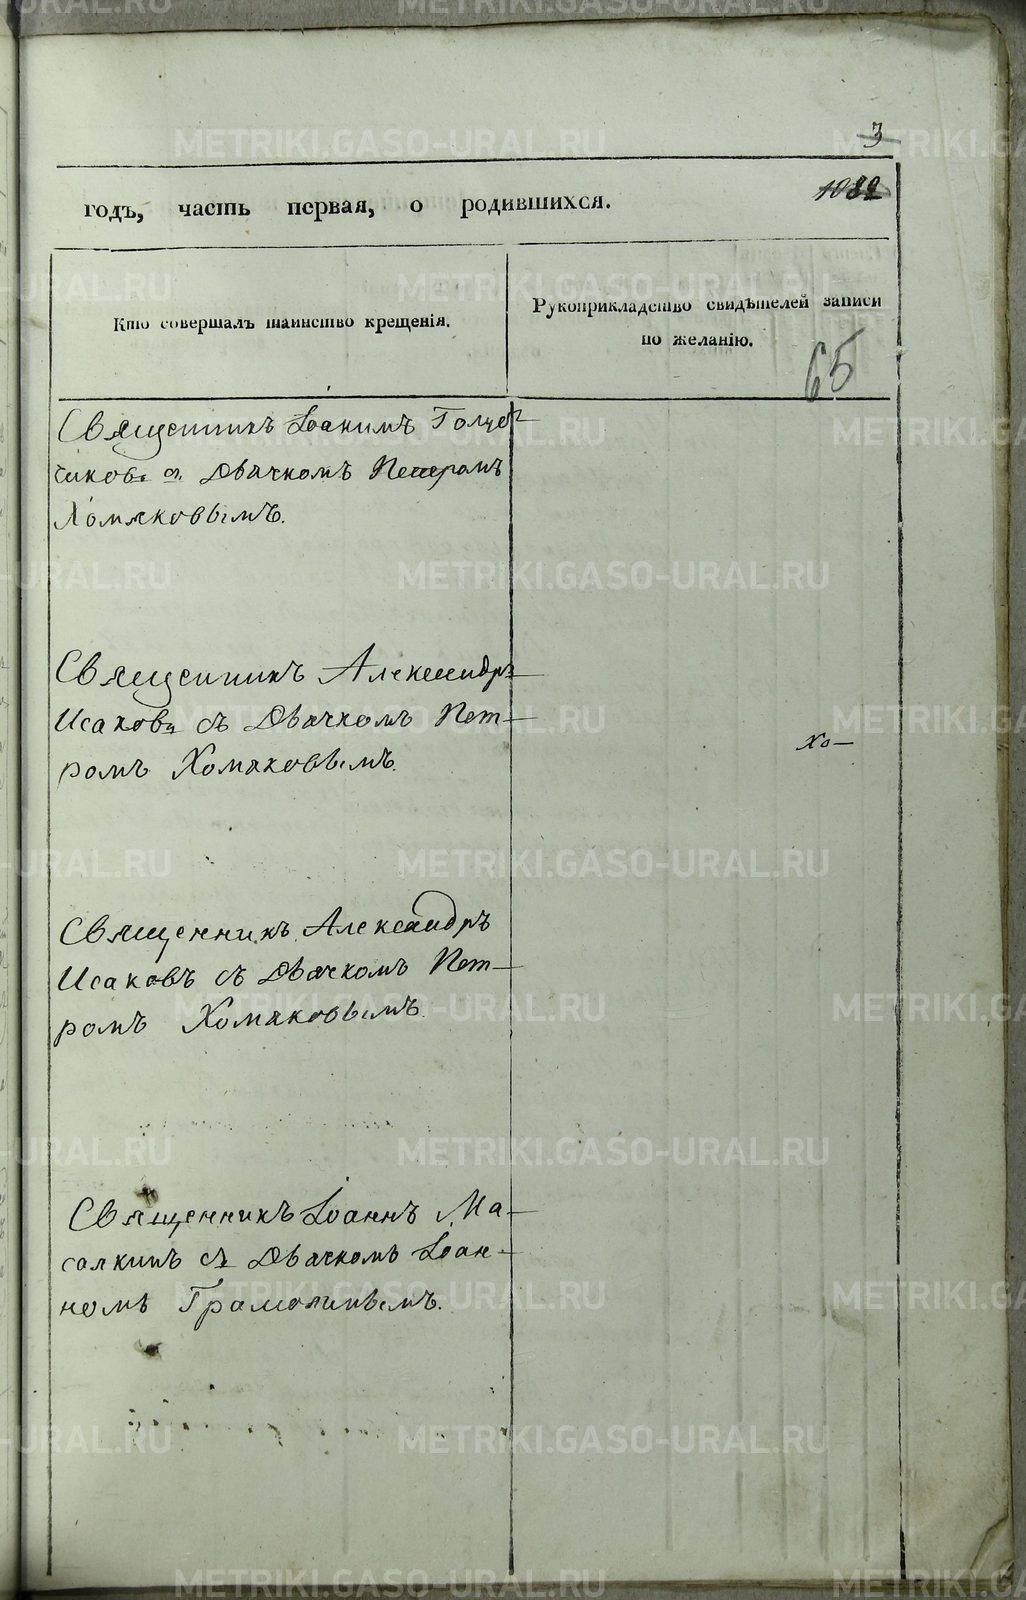 3
1082
годъ, часть первая, о родившихся.
Кто совершалъ таинство крещенія.
Рукоприкладство свидѣтелей записи
по желанію.
65
Священникъ Іоакимъ
съ Дьячкомъ Петромъ
Хомяковымъ.
Священникъ Александръ
Исаковъ съ Дьячкомъ Пет-
ромъ Хомяковымъ.
Хо-
Священникъ Александръ
Исаковъ съ Дьячкомъ Пет-
ромъ Хомяковымъ.
Священникъ Іоаннъ Ма-
салкинъ съ Дьячкомъ Іоан-
номъ
METRIKI.GASO-URAL.RU